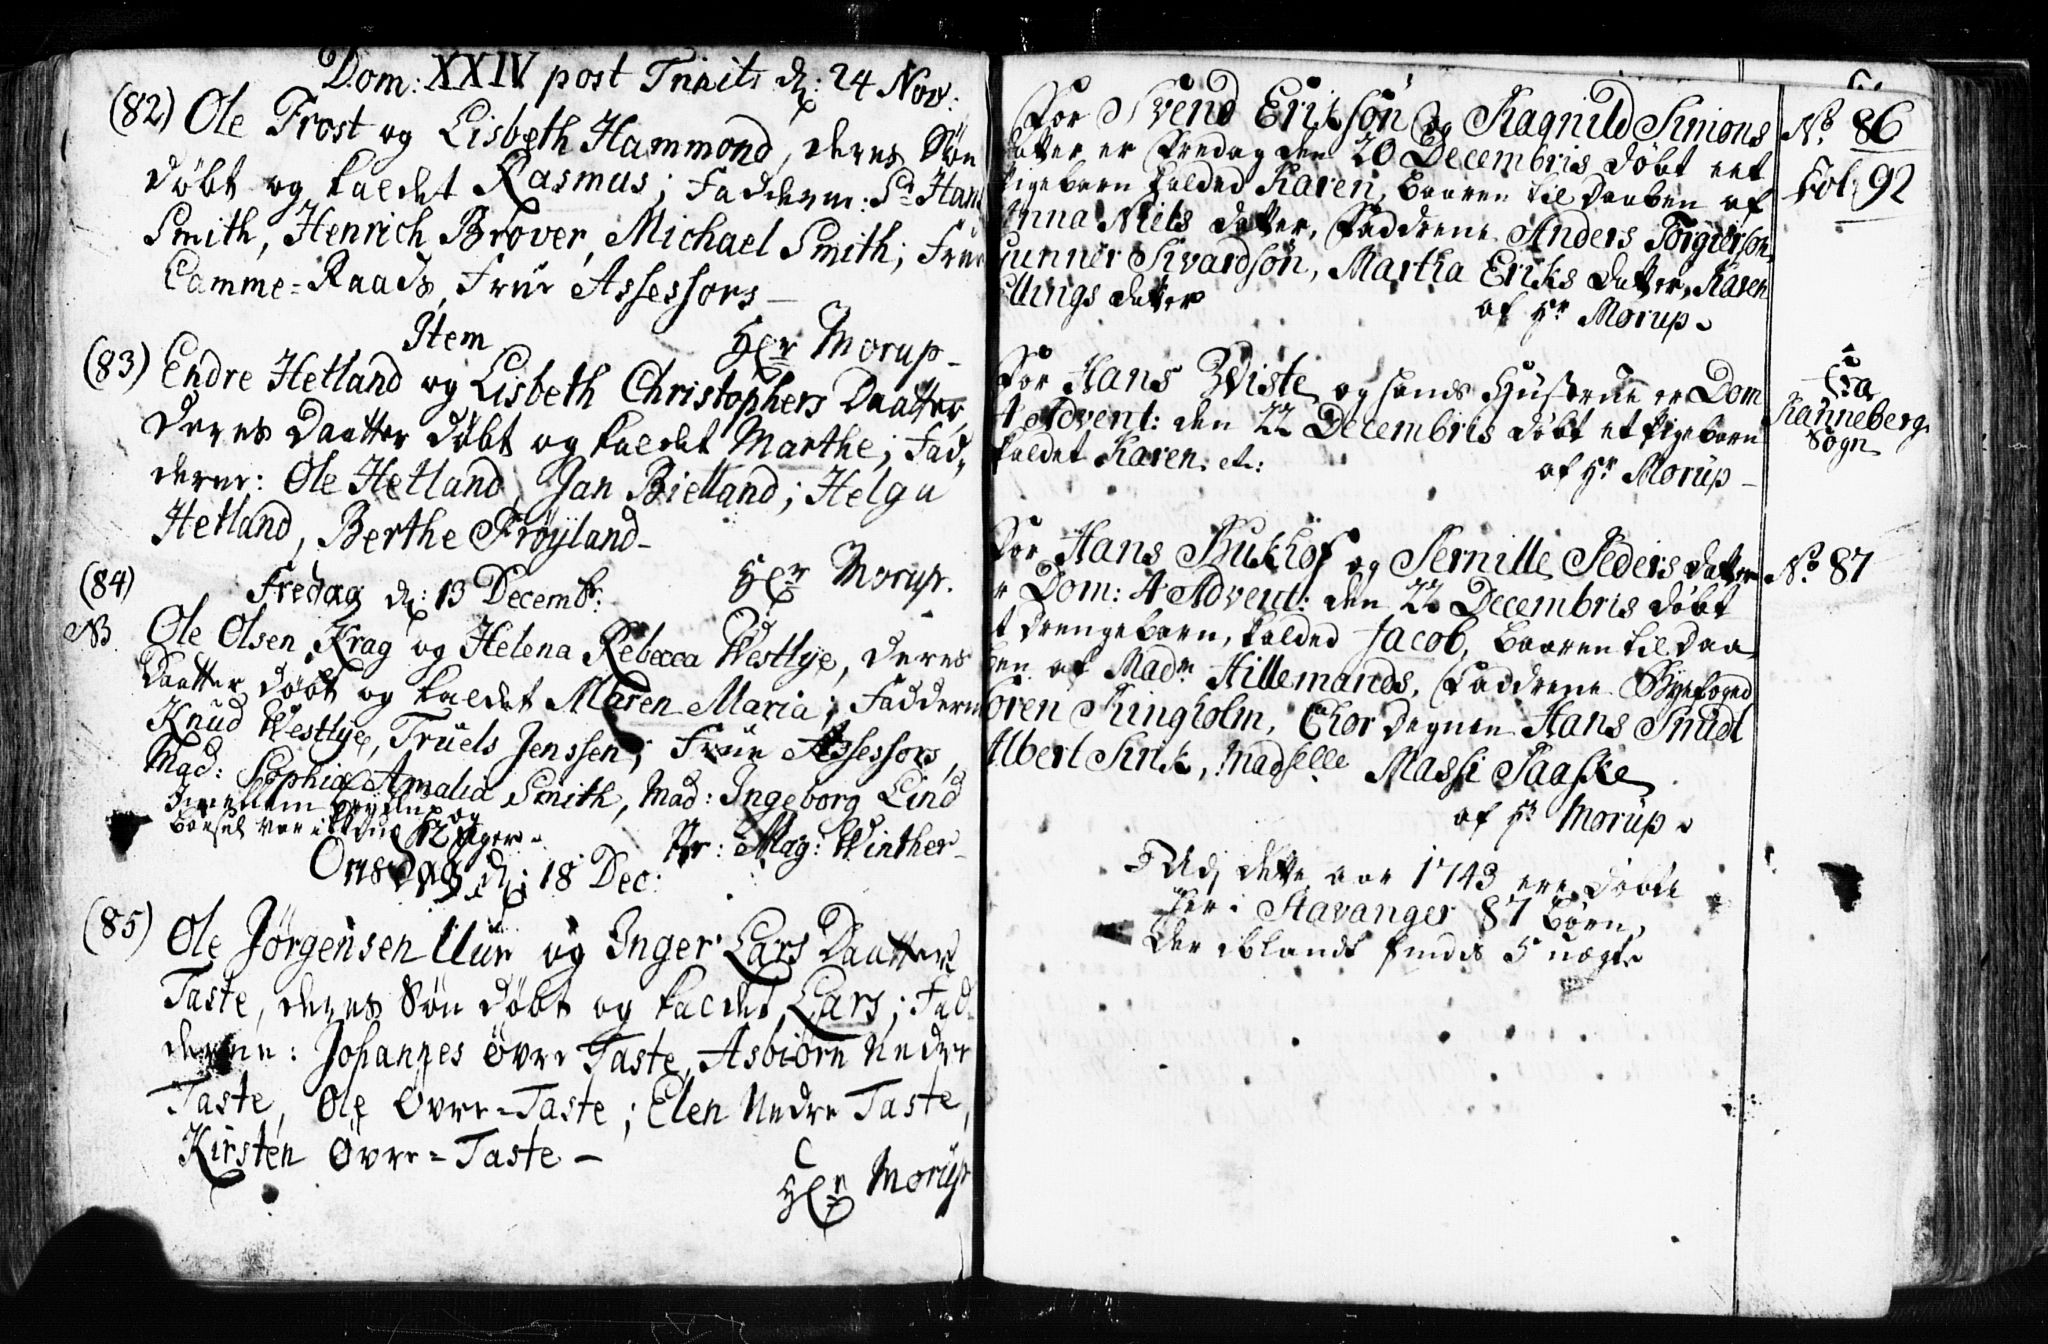 Dom: XXIV post Trinit: d: 24 Nov:
(82) Ole Frost og Lisbeth Hammond, deres Søn
døbt og kaldet Rasmus; Fadderne: Sr Hans
Smith, Henrich Brover, Michael Smith; Frue
Camme-Raads, Frue Assessors
Item Her Morup
(83) Endre Hetland og Lisbeth Christophers Daatter,
deres Daatter døbt og kaldet Marthe; Fad-
derne: Ole Hetland, Jan Bielland; Helga
Hetland, Berthe Frøyland
Her Morup.
(84) Fredag d: 13 Decembr:
NB Ole Olsen Krag og Helena Rebecca Westlye, deres
Daatter døbt og kaldet Maren Maria; Fadderne
Knud Westlye, Truels Jenssen; Frue Assessors,
Mad: Sophia Amalia Smith, Mad: Ingeborg Lind
og
Barsel var ikkun 12 Uger
Pr: Mag: Winther
Onsdag d: 18 Dec:
(85) Ole Jørgensen Uur og Inger Lars Daatter
Taste, deres Søn døbt og kaldet Lars; Fad-
derne: Johannes Øvre Taste, Asbiørn Nedre
Taste, Ole Øvre-Taste; Elen Nedre Taste,
Kirsten Øvre-Taste
Her Morup
For Svend Eriksøn og Ragnild Simons
datter er Fredag den 20 Decembris døbt eet
pigebarn kalded Karen, baaren til daaben af
Anna Niels datter, Faddrene Anders Torgierson,
Gunner Sivardsøn, Martha Eriks datter, Karen
Ellings datter
af Hr Morup
No 86
Fol: 92
For Hans Zviste og hands Hustrue er Dom
4 Advent: den 22 Decembris døbt et pigebarn
kaldet Karen. etc:
af Hr Morup
fra
Ranneberg
Sogn
For Hans Bukhof og Pernille Peders datter
er Dom: 4 Advent: den 22 Decembris døbt
et drengebarn, kalded Jacob, baaren til daa
ben af Madm Hillemands, Faddrene Byefoged
Søren Ringholm, Chor degnen Hans Snudt
Albert Sink, Madselle Massi Paaske
af Hr Morup
No 87
Ud, dette aar 1743 ere døbte
her i Stavanger 87 børn,
der iblandt findes 5 uægte